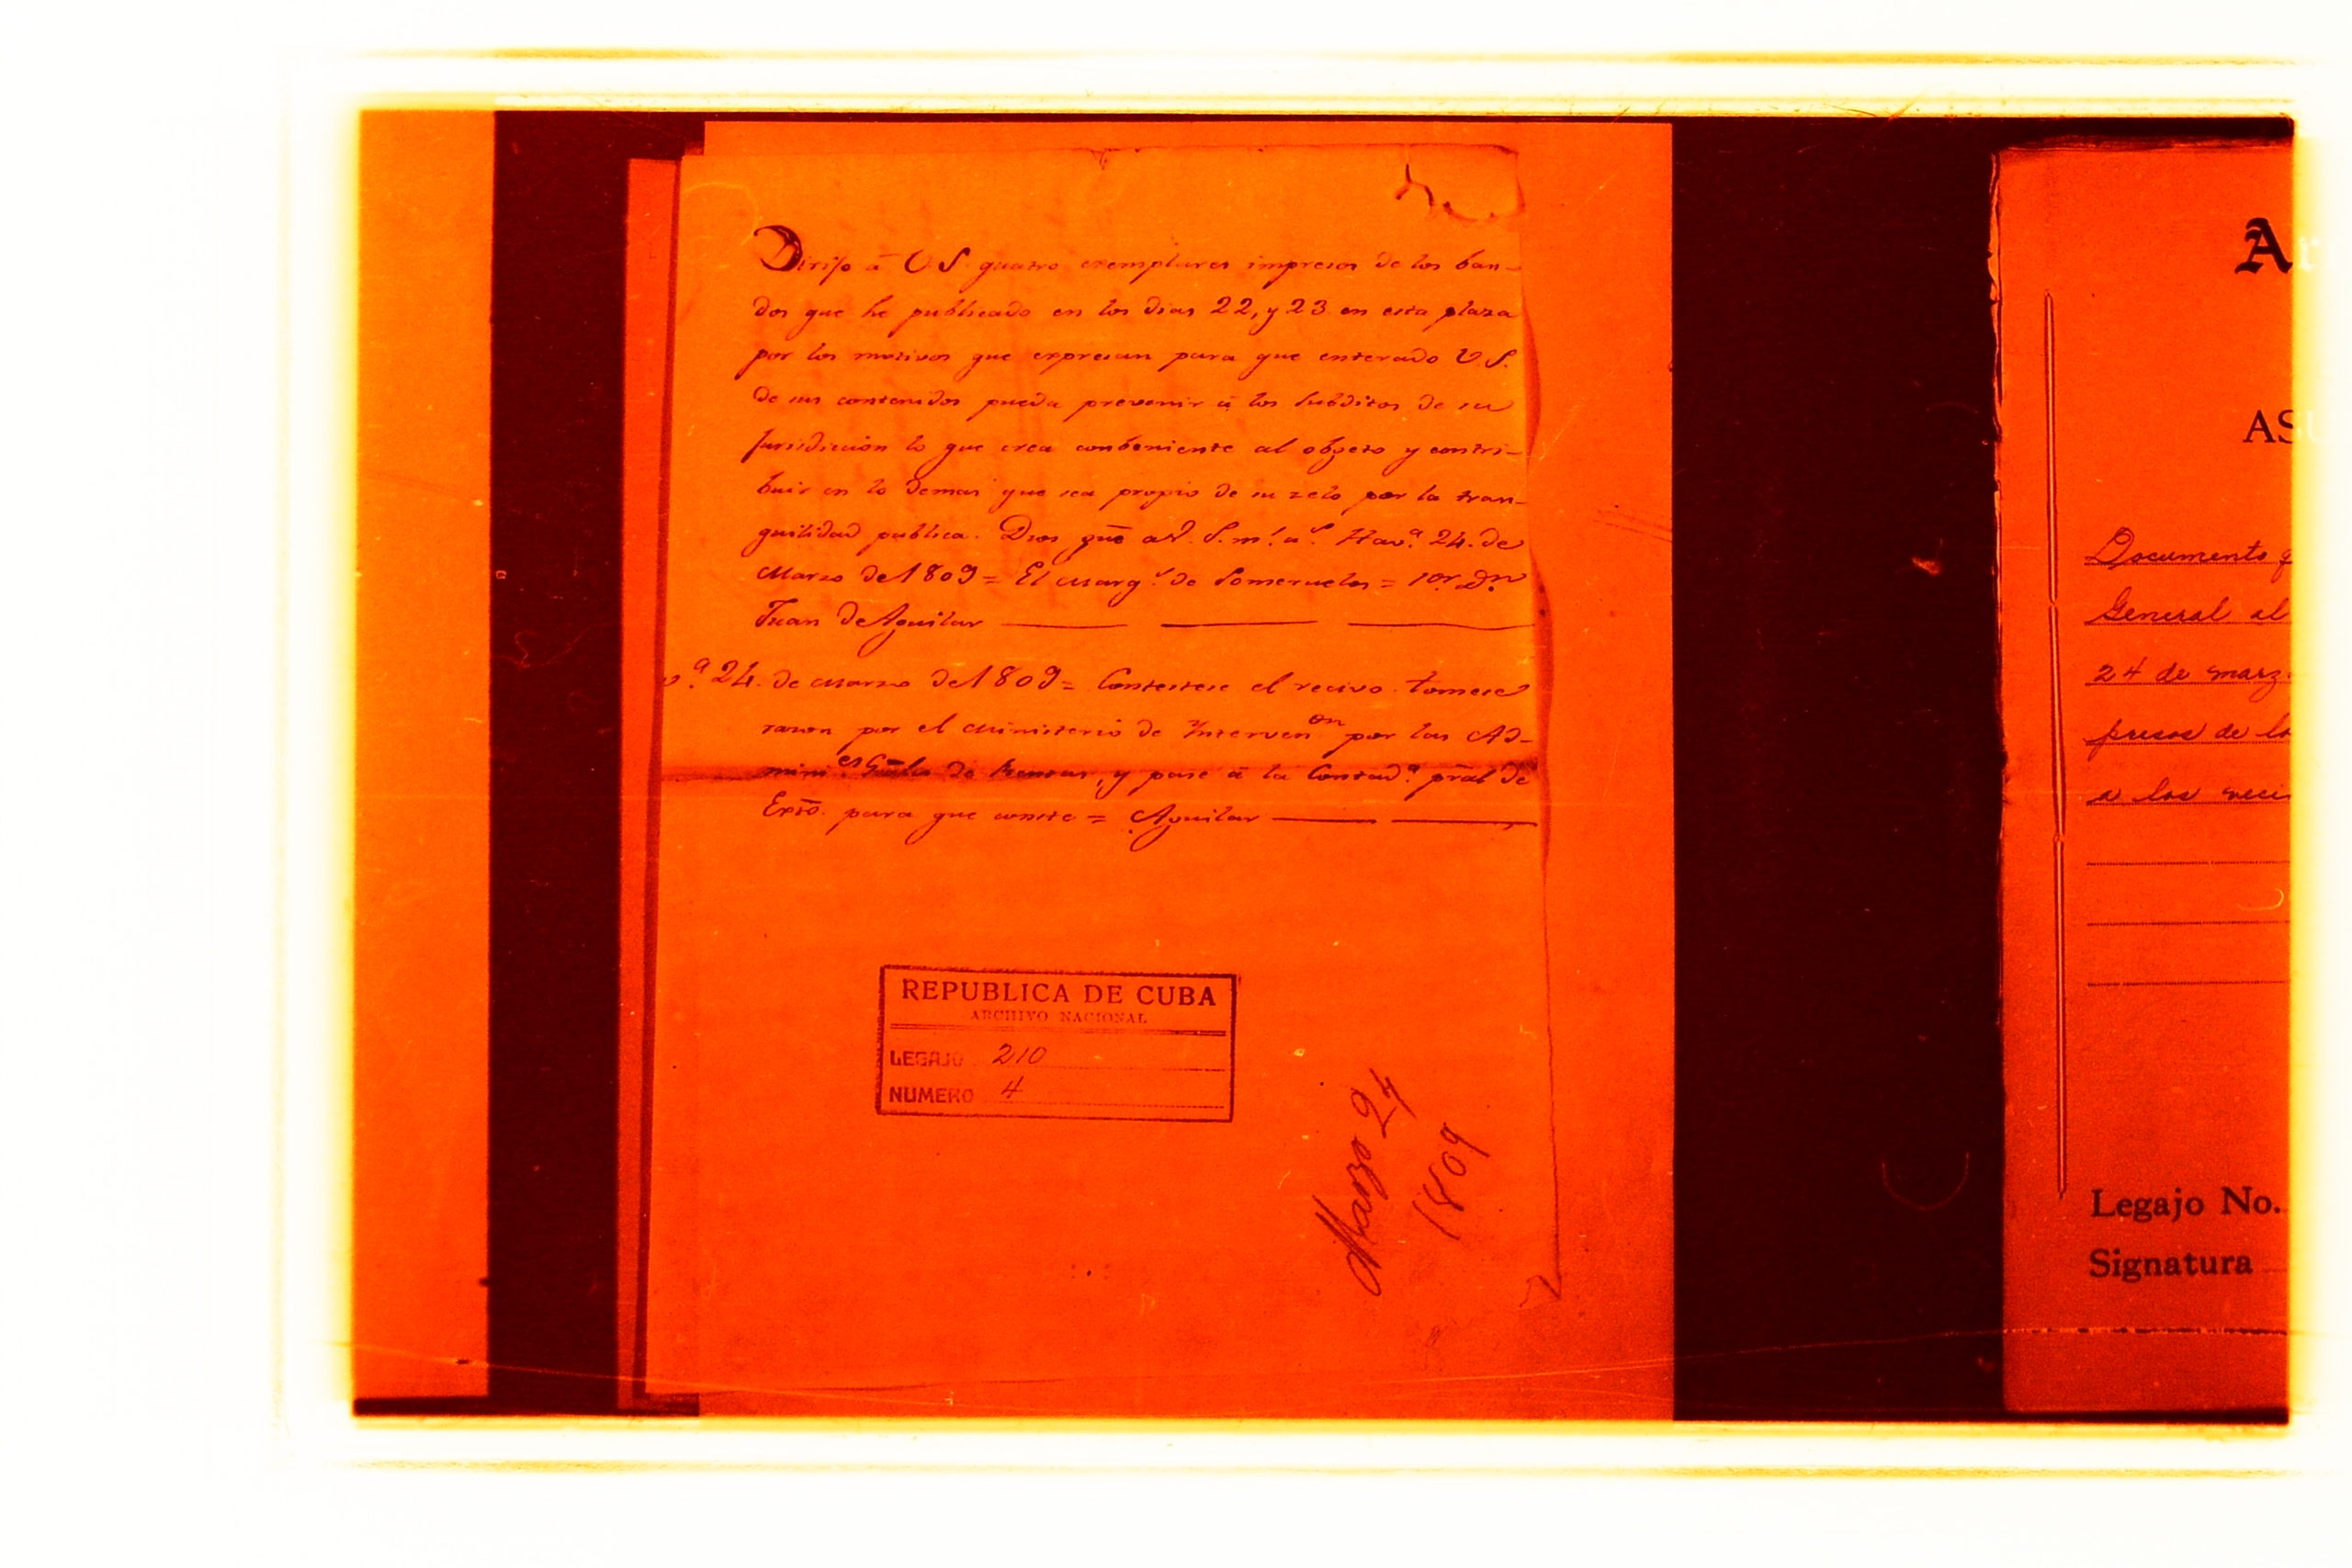 Dirijo á V.S. quatro exemplares impresos de los ban-
dos que he publicado en los dias 22, y 23 en esta plaza
por los motivos que expresan para que enterado V.S.
de sus contenidos pueda prevenir á los subditos de su
jurisdiccion lo que crea conbeniente al objeto y contri-
buir en lo demas que sea propio de su zelo por la tran-
quilidad publica. Dios gūe a V.S. m.s a.s Hav.a 24. de
Marzo de 1809 = El Marq.s de Someruelos = Sor. Dn.
Juan de Aguilar
v.a 24. de Marzo de 1809 = Contestese el recivo tomese
razon por el Ministerio de Interven.on por las Ad-
mini.es Grāles de Rentas, y pase á la Contad.a prāl de
Exto. para que conste = Aguilar
REPUBLICA DE CUBA
ARCHIVO NACIONAL
LEGAJO 210
NUMERO 4
Marzo 24
1809
Ar
ASU
Documento q
General al
24 de marz
presos de lo
a los veci
Legajo No.
Signatura